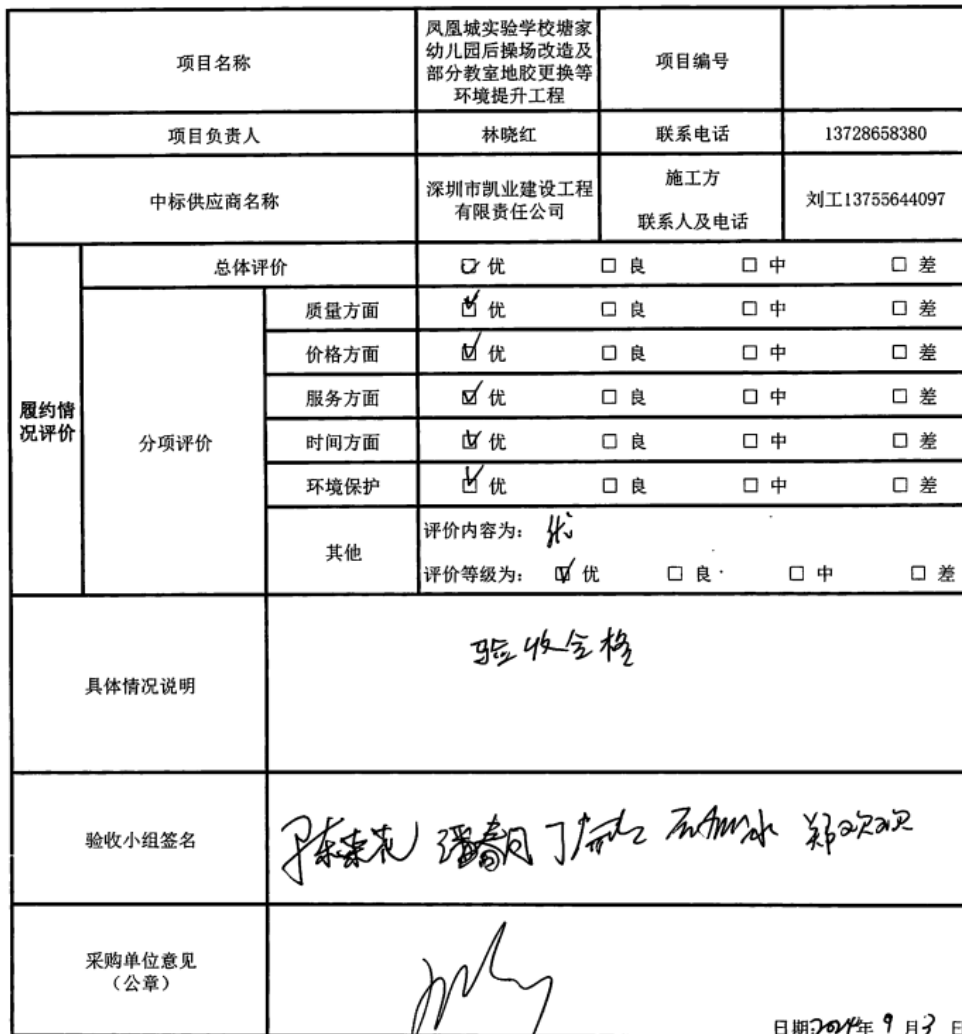 项目名称
凤凰城实验学校塘家
幼儿园后操场改造及
部分教室地胶更换等
环境提升工程
项目编号
项目负责人
林晓红
联系电话
13728658380
中标供应商名称
深圳市凯业建设工程
有限责任公司
施工方
联系人及电话
刘工13755644097
履约情
况评价
总体评价
☑ 优 □ 良 □ 中 □ 差
分项评价
质量方面
☑ 优 □ 良 □ 中 □ 差
价格方面
☑ 优 □ 良 □ 中 □ 差
服务方面
☑ 优 □ 良 □ 中 □ 差
时间方面
☑ 优 □ 良 □ 中 □ 差
环境保护
☑ 优 □ 良 □ 中 □ 差
其他
评价内容为: 优
评价等级为: ☑ 优 □ 良 □ 中 □ 差
具体情况说明
验收合格
验收小组签名
潘春月 郑欢欢
采购单位意见
(公章)
日期:2024年 9 月 3 日